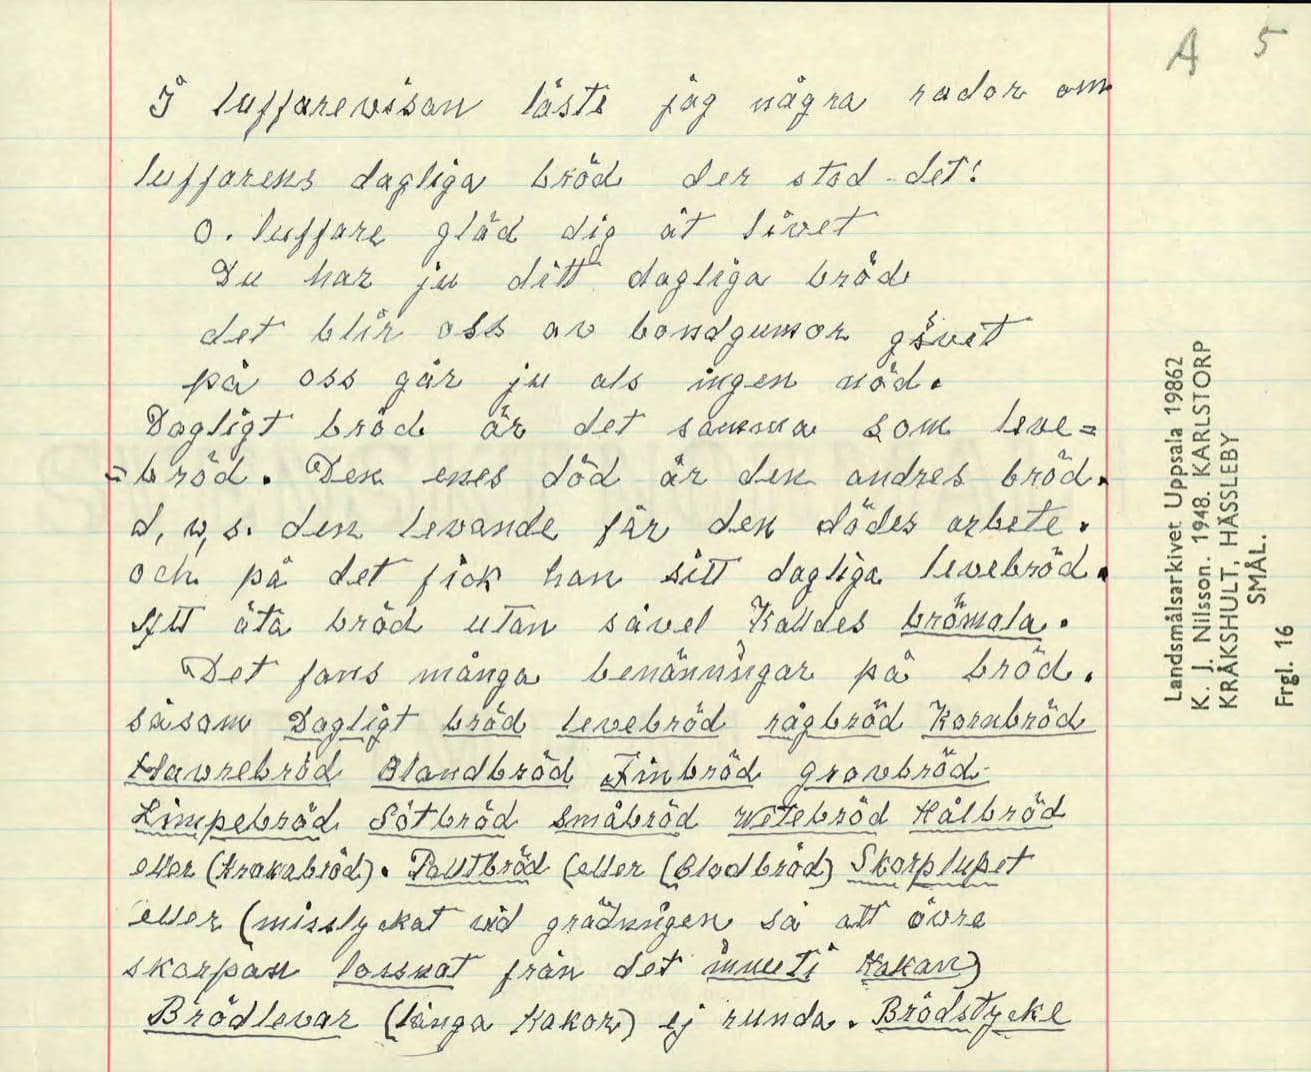 A 5
I luffarevisan läste jag några rador om
luffarens dagliga bröd der stod det:
O. luffare gläd dig åt livet
Du har ju ditt dagliga bröd
det blir oss av bondgumor givet
på oss går ju als ingen nöd.
Dagligt bröd är det samma som leve=
=bröd. Den enes död är den andres bröd.
d, v, s. den levande får den dödes arbete.
och på det fick han sitt dagliga levebröd.
Att äta bröd utan såvel Kalldes brömola.
Det fans många benänningar på bröd.
såsom Dagligt bröd levebröd rågbröd Kornbröd
Havrebröd Blandbröd Finbröd grovbröd
Limpebröd Sötbröd småbröd Wetebröd Hålbröd
eller (Krakabröd). Paltbröd (eller (Blodbröd) Skorplupet
eller (misslyckat vid grädnigen så att övre
skorpan lossnat från det inuti Kakan)
Brödlevar (långa Kakor) ej runda. Brödstycke
Landsmålsarkivet Uppsala 19862
K. J. Nilsson. 1948. KARLSTORP
KRÅKSHULT, HÄSSLEBY
SMÅL.
Frgl. 16